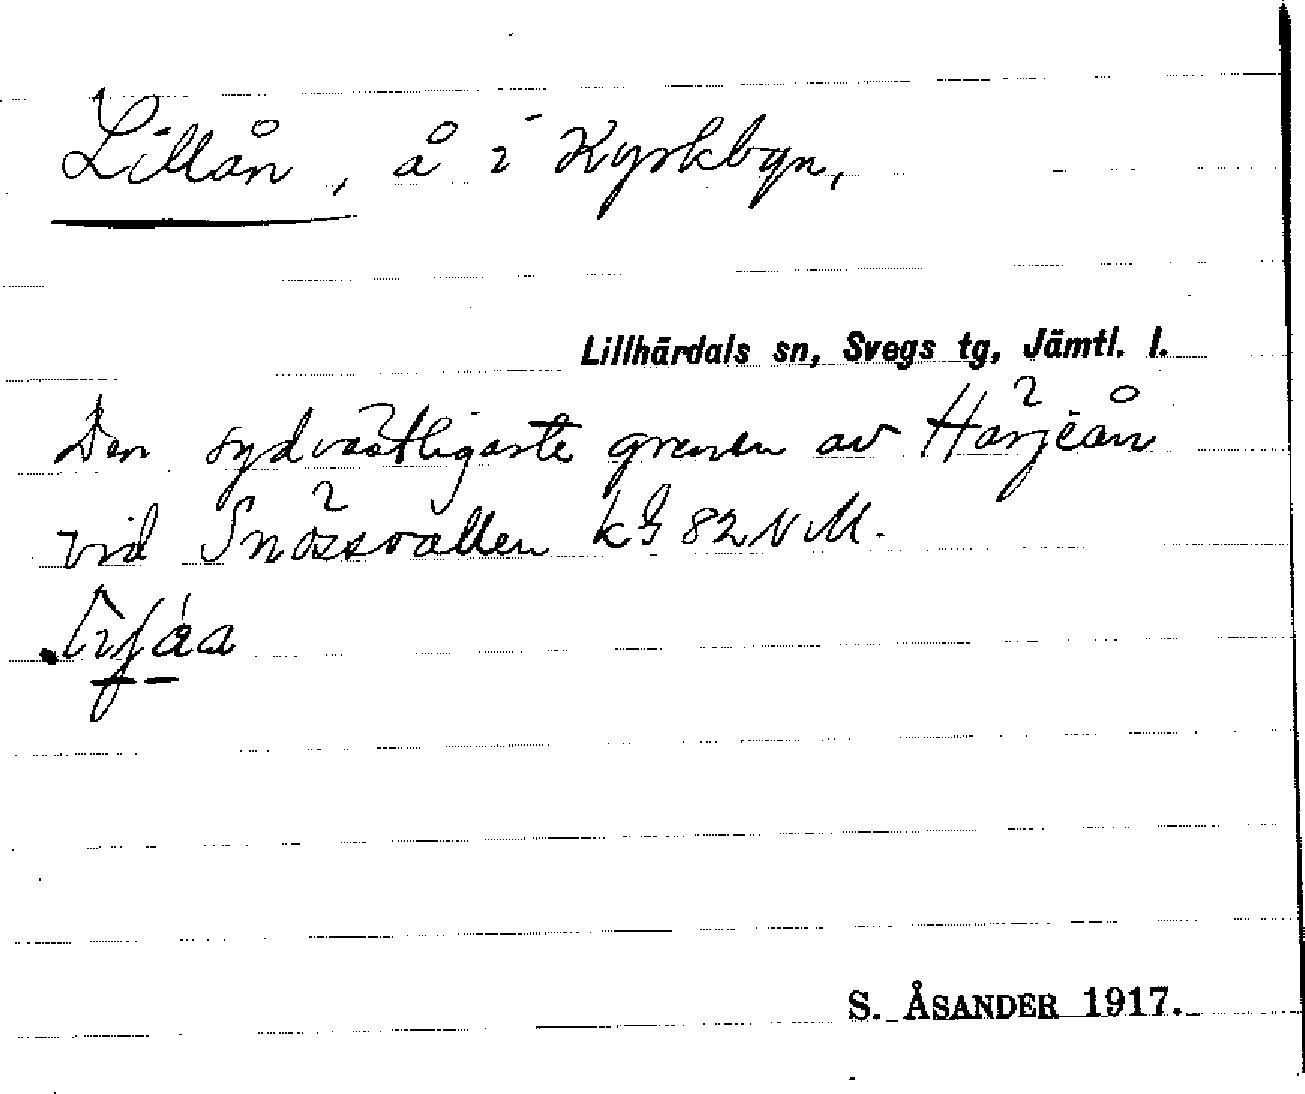 Lillån, å i Kyrkbyn,
Lillhärdals sn, Svegs tg, Jämtl. l.
Den sydvästligaste grenen av Härjeån
vid Snössvallen kbl 82 NM.
S. ÅSANDER 1917.